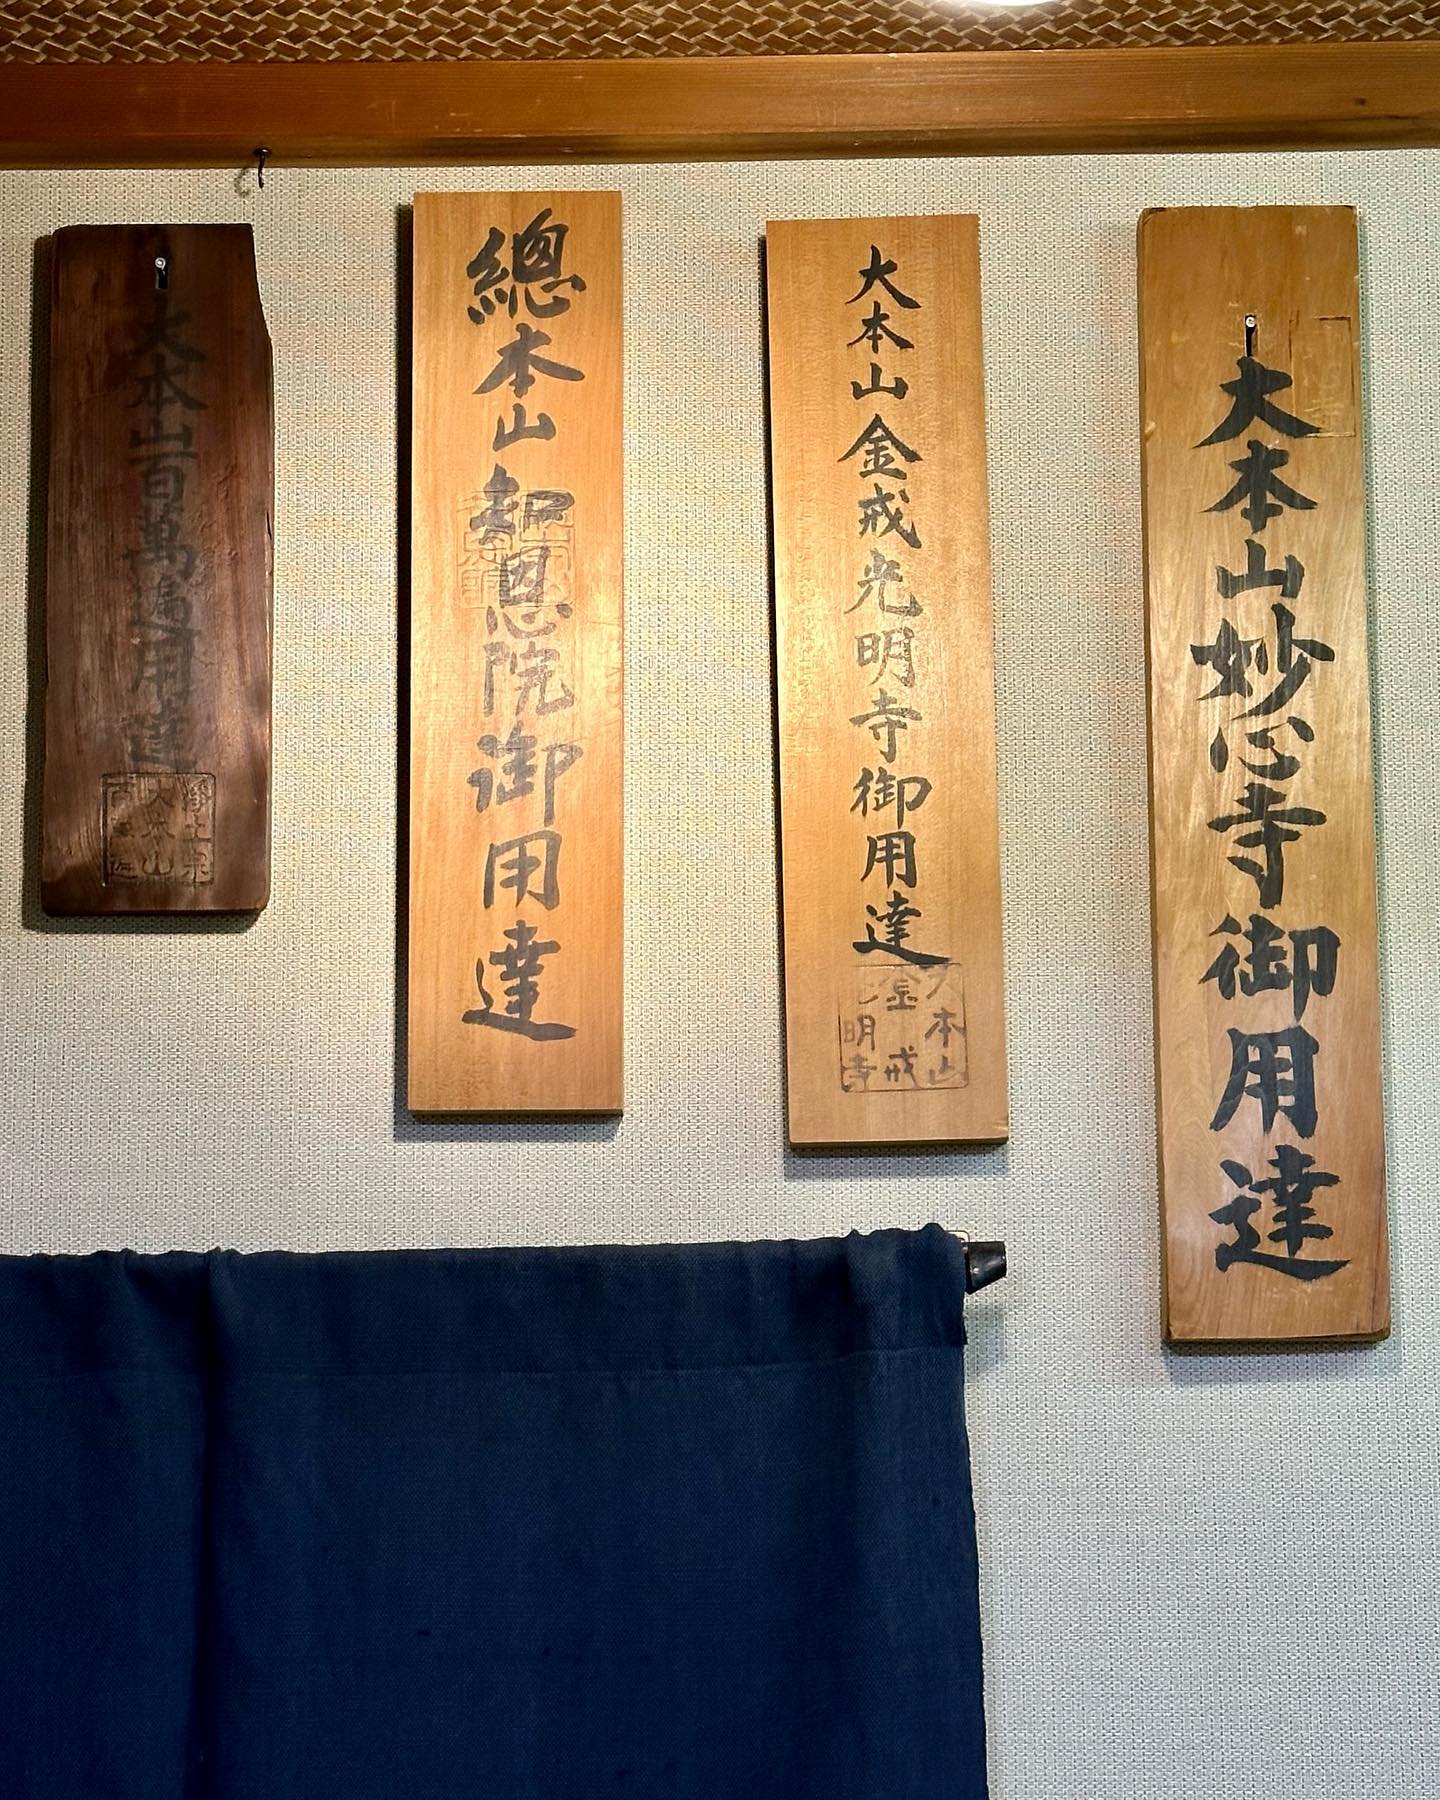 大本山妙心寺御用達
大本山金戒光明寺御用達
大本山
金戒
光明寺
總本山知恩院御用達
大本山百萬遍用達
浄土宗
大本山